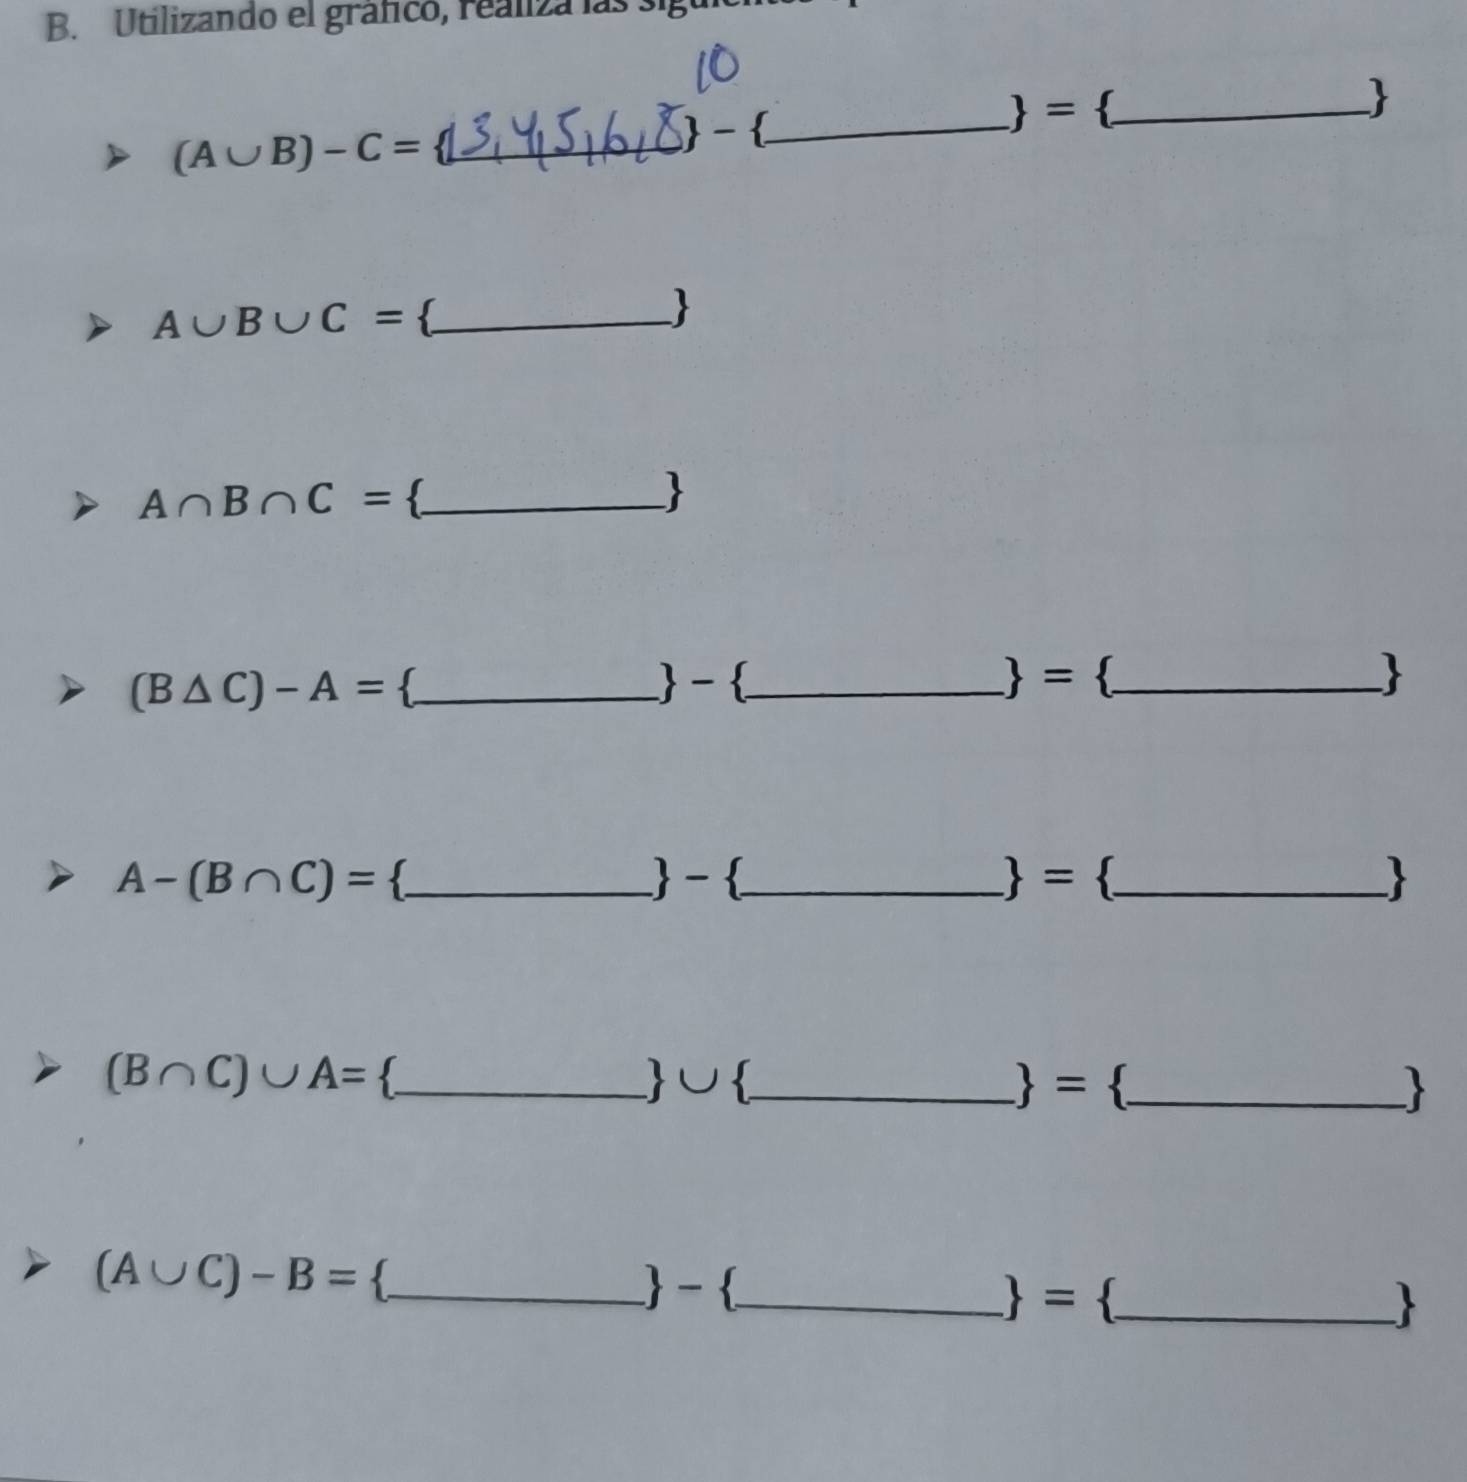 B. Utilizando el gráfico, realiza las
10
➤ (A ∪ B) – C = {1 3, 4, 5, 6, 8} – {__________} = {__________}
➤ A ∪ B ∪ C = {__________}
➤ A ∩ B ∩ C = {__________}
➤ (B Δ C) – A = {__________} – {__________} = {__________}
➤ A – (B ∩ C) = {__________} – {__________} = {__________}
➤ (B ∩ C) ∪ A= {__________} ∪ {__________} = {__________}
➤ (A ∪ C) – B = {__________} – {__________} = {__________}